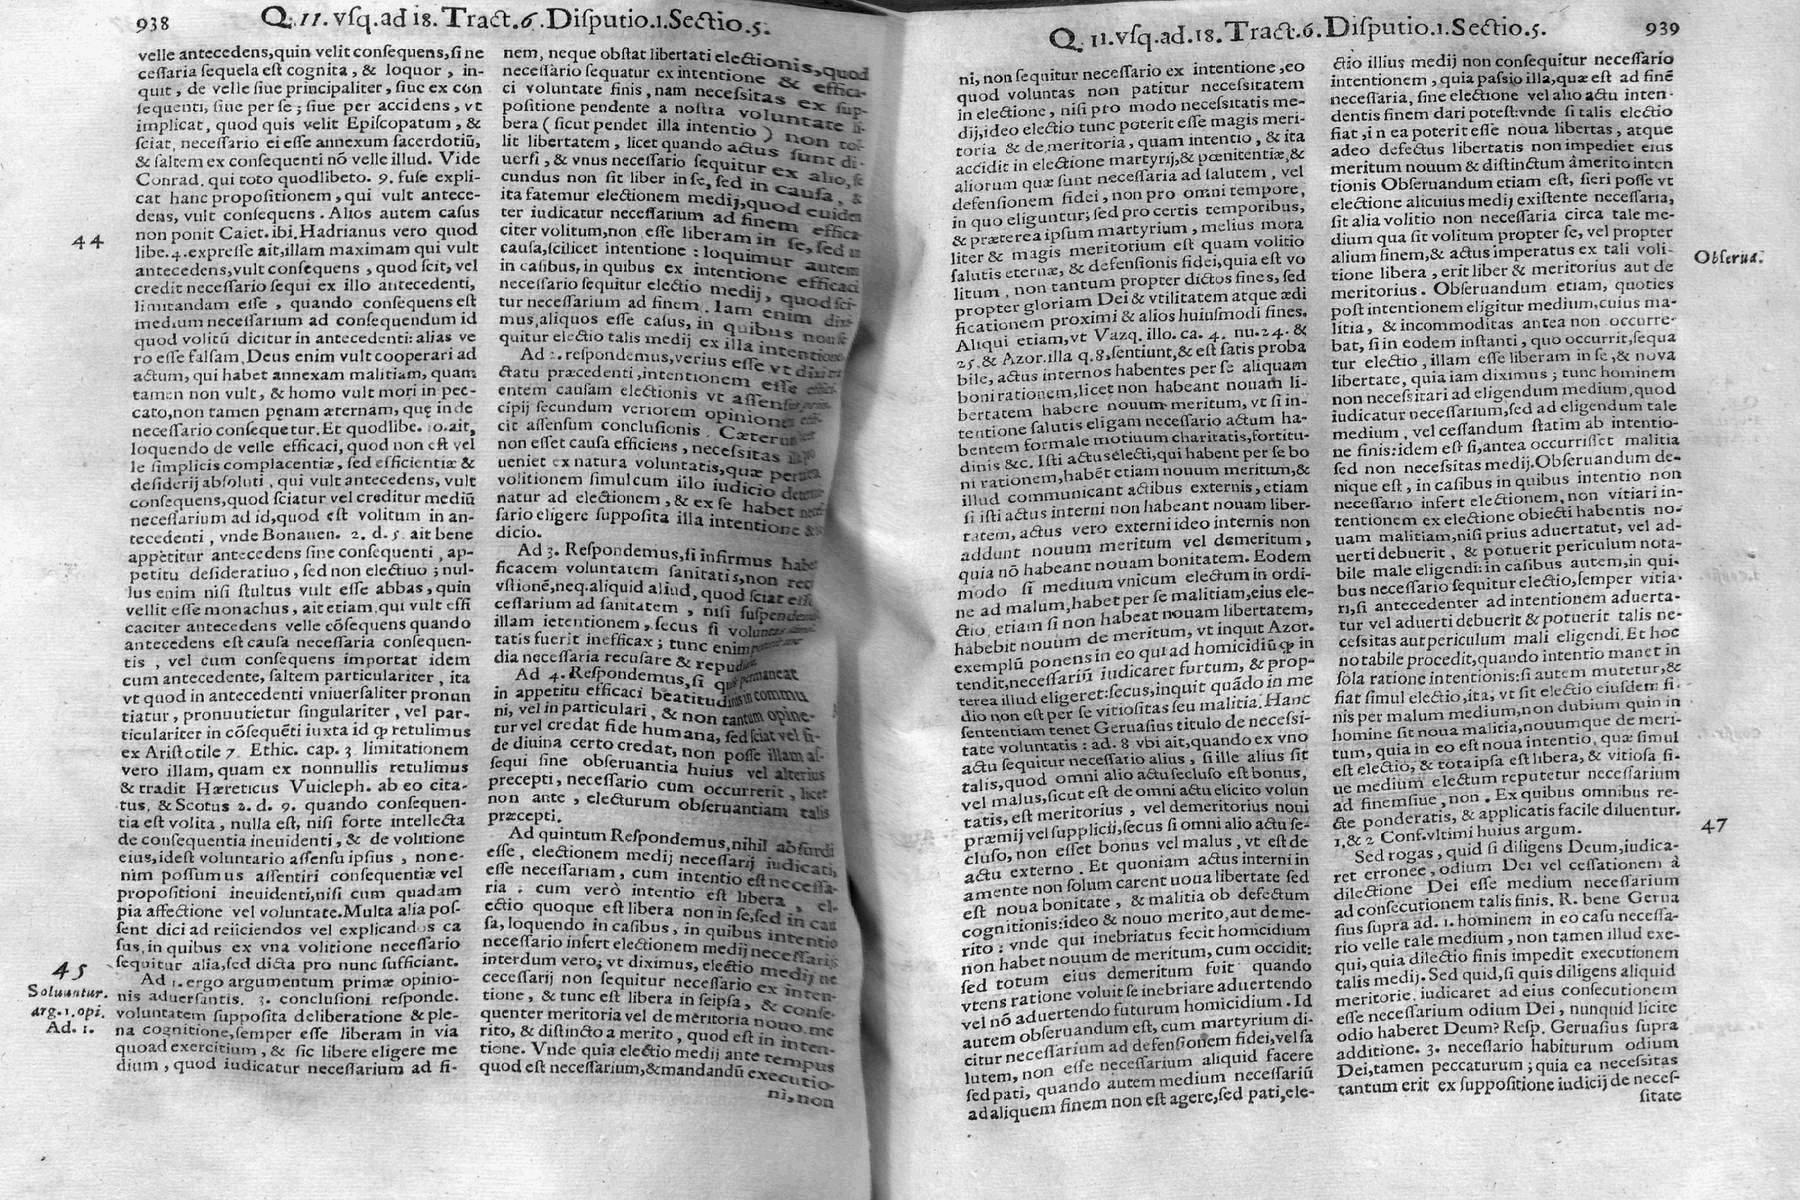 938
Q. 11. vſq. ad 18. Tract. 6. Diſputio. 1. Sectio. 5.
velle antecedens, quin velit conſequens, ſi ne
ceſſaria ſequela eſt cognita, & loquor, in-
quit, de velle ſiue principaliter, ſiue ex con
ſequenti, ſiue per ſe; ſiue per accidens, vt
implicat, quod quis velit Epiſcopatum, &
ſciat, neceſſario ei eſſe annexum ſacerdotiũ,
& ſaltem ex conſequenti nõ velle illud. Vide
Conrad. qui toto quodlibeto. 9. fuſe expli-
cat hanc propoſitionem, qui vult antece-
dens, vult conſequens. Alios autem caſus
44
non ponit Caiet. ibi. Hadrianus vero quod
libe. 4. expreſſe ait, illam maximam qui vult
antecedens, vult conſequens, quod ſcit, vel
credit neceſſario ſequi ex illo antecedenti,
limitandam eſſe, quando conſequens eſt
medium neceſſarium ad conſequendum id
quod volitũ dicitur in antecedenti: alias ve
ro eſſe falſam, Deus enim vult cooperari ad
actum, qui habet annexam malitiam, quam
tamen non vult, & homo vult mori in pec-
cato, non tamen pęnam æternam, quę inde
neceſſario conſequetur. Et quodlibe. 10. ait,
loquendo de velle efficaci, quod non eſt vel
le ſimplicis complacentiæ, ſed efficientiæ &
deſiderij abſoluti, qui vult antecedens, vult
conſequens, quod ſciatur vel creditur mediũ
neceſſarium ad id, quod eſt volitum in an-
tecedenti, vnde Bonauen. 2. d. 5. ait bene
appetitur antecedens ſine conſequenti, ap-
petitu deſideratiuo, ſed non electiuo; nul-
lus enim niſi ſtultus vult eſſe abbas, quin
vellit eſſe monachus, ait etiam, qui vult effi
caciter antecedens velle cõſequens quando
antecedens eſt cauſa neceſſaria conſequen-
tis, vel cum conſequens importat idem
cum antecedente, ſaltem particulariter, ita
vt quod in antecedenti vniuerſaliter pronun
tiatur, pronuutietur ſingulariter, vel par-
ticulariter in cõſequẽti iuxta id ꝙ retulimus
ex Ariſtotile 7. Ethic. cap. 3 limitationem
vero illam, quam ex nonnullis retulimus
& tradit Hæreticus Vuicleph. ab eo cita-
tus, & Scotus 2. d. 9. quando conſequen-
tia eſt volita, nulla eſt, niſi forte intellecta
de conſequentia ineuidenti, & de volitione
eius, ideſt voluntario aſſenſu ipſius, non e-
nim poſſumus aſſentiri conſequentiæ vel
propoſitioni ineuidenti, niſi cum quadam
pia affectione vel voluntate. Multa alia poſ-
ſent dici ad reiiciendos vel explicandos ca
ſus, in quibus ex vna volitione neceſſario
ſequitur alia, ſed dicta pro nunc ſufficiant.
45
Soluuntur.
arg. 1. opi.
Ad. 1.
Ad 1. ergo argumentum primæ opinio-
nis aduerſantis. 3. concluſioni reſponde.
voluntatem ſuppoſita deliberatione & ple-
na cognitione, ſemper eſſe liberam in via
quoad exercitium, & ſic libere eligere me
dium, quod iudicatur neceſſarium ad fi-
nem, neque obſtat libertati electionis, quod
neceſſario ſequatur ex intentione & effica-
ci voluntate finis, nam neceſsitas ex ſup-
poſitione pendente a noſtra voluntate li-
bera (ſicut pendet illa intentio) non tol-
lit libertatem, licet quando actus ſunt di-
uerſi, & vnus neceſſario ſequitur ex alio, ſe
cundus non ſit liber in ſe, ſed in cauſa, &
ita fatemur electionem medij, quod euiden
ter iudicatur neceſſarium ad finem effica
citer volitum, non eſſe liberam in ſe, ſed in
cauſa, ſcilicet intentione: loquimur autem
in caſibus, in quibus ex intentione efficaci
neceſſario ſequitur electio medij, quod ſci-
tur neceſſarium ad finem. Iam enim dixi-
mus, aliquos eſſe caſus, in quibus non ſe
quitur electio talis medij ex illa intentione.
Ad 2. reſpondemus, verius eſſe vt dixi in
ctatu præcedenti, intentionem eſſe effici-
entem cauſam electionis vt aſſenſus prin-
cipij ſecundum veriorem opinionem effi-
cit aſſenſum concluſionis. Cæterum
non eſſet cauſa efficiens, neceſsitas
ueniet ex natura voluntatis, quæ per
volitionem ſimul cum illo iudicio determi
natur ad electionem, & ex ſe habet neceſ
ſario eligere ſuppoſita illa intentione &
dicio.
Ad 3. Reſpondemus, ſi infirmus habe
ficacem voluntatem ſanitatis, non rec
vſtionẽ, neq. aliquid aliud, quod ſciat eſſe
ceſſarium ad ſanitatem, niſi ſuſpenden
illam ietentionem, ſecus ſi voluntas
tatis fuerit inefficax; tunc enim
dia neceſſaria recuſare & repudi
Ad 4. Reſpondemus, ſi quis permaneat
in appetitu efficaci beatitudinis in commu
ni, vel in particulari, & non tantum opine-
tur vel credat fide humana, ſed ſciat vel fi-
de diuina certo credat, non poſſe illam aſ-
ſequi ſine obſeruantia huius vel alterius
precepti, neceſſario cum occurrerit, licet
non ante, electurum obſeruantiam talis
præcepti.
Ad quintum Reſpondemus, nihil abſurdi
eſſe, electionem medij neceſſarij iudicati,
eſſe neceſſariam, cum intentio eſt neceſſa-
ria: cum verò intentio eſt libera, el-
ectio quoque eſt libera non in ſe, ſed in cau
ſa, loquendo in caſibus, in quibus intentio
neceſſario infert electionem medij neceſſarij;
interdum vero; vt diximus, electio medij ne
ceceſſarij non ſequitur neceſſario ex inten-
tione, & tunc eſt libera in ſeipſa, & conſe-
quenter meritoria vel de meritoria nouo me
rito, & diſtincto a merito, quod eſt in inten-
tione. Vnde quia electio medij ante tempus
quod eſt neceſſarium, & mandandũ executio-
ni, non
Q. 11. vſq. ad. 18. Tract. 6. Diſputio. 1. Sectio. 5.
939
ni, non ſequitur neceſſario ex intentione, eo
quod voluntas non patitur neceſsitatem
in electione, niſi pro modo neceſsitatis me-
dij, ideo electio tunc poterit eſſe magis meri-
toria & de meritoria, quam intentio, & ita
accidit in electione martyrij, & pœnitentiæ, &
aliorum quæ ſunt neceſſaria ad ſalutem, vel
defenſionem fidei, non pro omni tempore,
in quo eliguntur; ſed pro certis temporibus,
& præterea ipſum martyrium, melius mora
liter & magis meritorium eſt quam volitio
ſalutis eternæ, & defenſionis fidei, quia eſt vo
litum, non tantum propter dictos fines, ſed
propter gloriam Dei & vtilitatem atque ædi
ficationem proximi & alios huiuſmodi fines.
Aliqui etiam, vt Vazq. illo. ca. 4. nu. 24. &
25. & Azor. illa q. 8. ſentiunt, & eſt ſatis proba
bile, actus internos habentes per ſe aliquam
boni rationem, licet non habeant nouam li-
bertatem habere nouum meritum, vt ſi in-
tentione ſalutis eligam neceſſario actum ha-
bentem formale motiuum charitatis, fortitu-
dinis &c. Iſti actus electi, qui habent per ſe bo
ni rationem, habẽt etiam nouum meritum, &
illud communicant actibus externis, etiam
ſi iſti actus interni non habeant nouam liber-
tatem, actus vero externi ideo internis non
addunt nouum meritum vel demeritum,
quia nõ habeant nouam bonitatem. Eodem
modo ſi medium vnicum electum in ordi-
ne ad malum, habet per ſe malitiam, eius ele-
ctio, etiam ſi non habeat nouam libertatem,
habebit nouum de meritum, vt inquit Azor.
exemplũ ponens in eo qui ad homicidiũ ꝙ in
tendit, neceſſariũ iudicaret furtum, & prop-
terea illud eligeret: ſecus, inquit quãdo in me
dio non eſt per ſe vitioſitas ſeu malitia. Hanc
ſententiam tenet Geruaſius titulo de neceſsi-
tate voluntatis: ad. 8 vbi ait, quando ex vno
actu ſequitur neceſſario alius, ſi ille alius ſit
talis, quod omni alio actu ſecluſo eſt bonus,
vel malus, ſicut eſt de omni actu elicito volun
tatis, eſt meritorius, vel demeritorius noui
præmij vel ſupplicij, ſecus ſi omni alio actu ſe-
cluſo, non eſſet bonus vel malus, vt eſt de
actu externo. Et quoniam actus interni in
amente non ſolum carent uoua libertate ſed
eſt noua bonitate, & malitia ob defectum
cognitionis: ideo & nouo merito, aut deme-
rito: vnde qui inebriatus fecit homicidium
non habet nouum de meritum, cum occidit:
ſed totum eius demeritum fuit quando
vtens ratione voluit ſe inebriare aduertendo
vel nõ aduertendo futurum homicidium. Id
autem obſeruandum eſt, cum martyrium di-
citur neceſſarium ad defenſionem fidei, vel ſa
lutem, non eſſe neceſſarium aliquid facere
ſed pati, quando autem medium neceſſariũ
ad aliquem finem non eſt agere, ſed pati, ele-
ctio illius medij non conſequitur neceſſario
intentionem, quia paſsio illa, quæ eſt ad finẽ
neceſſaria, ſine electione vel alio actu inten-
dentis finem dari poteſt: vnde ſi talis electio
fiat, in ea poterit eſſe noua libertas, atque
adeo defectus libertatis non impediet eius
meritum nouum & diſtinctum à merito inten
tionis Obſeruandum etiam eſt, fieri poſſe vt
electione alicuius medij exiſtente neceſſaria,
ſit alia volitio non neceſſaria circa tale me-
dium qua ſit volitum propter ſe, vel propter
alium finem, & actus imperatus ex tali voli-
Obſerua.
tione libera, erit liber & meritorius aut de
meritorius. Obſeruandum etiam, quoties
poſt intentionem eligitur medium, cuius ma-
litia, & incommoditas antea non occurre-
bat, ſi in eodem inſtanti, quo occurrit, ſequa
tur electio, illam eſſe liberam in ſe, & nova
libertate, quia iam diximus; tunc hominem
non neceſsitari ad eligendum medium, quod
iudicatur neceſſarium, ſed ad eligendum tale
medium, vel ceſſandum ſtatim ab intentio-
ne finis: idem eſt ſi, antea occurriſſet malitia
ſed non neceſsitas medij. Obſeruandum de-
nique eſt, in caſibus in quibus intentio non
neceſſario infert electionem, non vitiari in-
tentionem ex electione obiecti habentis no-
uam malitiam, niſi prius aduertatut, vel ad-
uerti debuerit, & potuerit periculum nota-
bile male eligendi: in caſibus autem, in qui-
bus neceſſario ſequitur electio, ſemper vitia-
ri, ſi antecedenter ad intentionem aduerta-
tur vel aduerti debuerit & potuerit talis ne-
ceſsitas aut periculum mali eligendi. Et hoc
notabile procedit, quando intentio manet in
ſola ratione intentionis: ſi autem mutetur, &
fiat ſimul electio, ita, vt ſit electio eiuſdem fi-
nis per malum medium, non dubium quin in
homine ſit noua malitia, nouumque de meri-
tum, quia in eo eſt noua intentio, quæ ſimul
eſt electio, & tota ipſa eſt libera, & vitioſa ſi-
ue medium electum reputetur neceſſarium
ad finem ſiue, non. Ex quibus omnibus re-
cte ponderatis, & applicatis facile diluentur.
1, & 2 Conf. vltimi huius argum.
47
Sed rogas, quid ſi diligens Deum, iudica-
ret erronee, odium Dei vel ceſſationem à
dilectione Dei eſſe medium neceſſarium
ad conſecutionem talis finis. R. bene Gerua
ſius ſupra ad. 1. hominem in eo caſu neceſſa-
rio velle tale medium, non tamen illud exe-
qui, quia dilectio finis impedit executionem
talis medij. Sed quid, ſi quis diligens aliquid
meritorie, iudicaret ad eius conſecutionem
eſſe neceſſarium odium Dei, nunquid licite
odio haberet Deum? Reſp. Geruaſius ſupra
additione. 3. neceſſario habiturum odium
Dei, tamen peccaturum; quia ea neceſsitas
tantum erit ex ſuppoſitione iudicij de neceſ-
ſitate